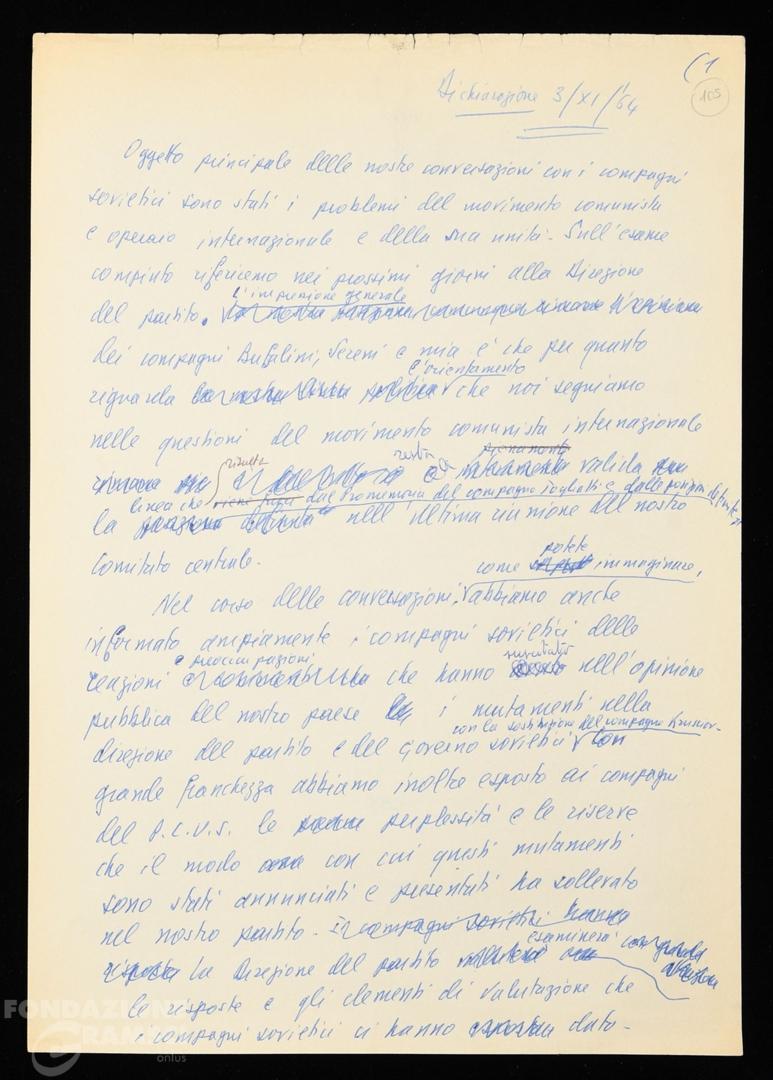 (1
105
Dichiarazione 3/XI/'64
Oggetto principale delle nostre conversazioni con i compagni
sovietici sono stati i problemi del movimento comunista
e operaio internazionale e della sua unità. Sull'esame
compiuto riferiremo nei prossimi giorni alla Direzione
l'impressione generale
del partito.
dei compagni Bufalini, Sereni e mia è che per quanto
l'orientamento
riguarda che noi seguiamo
nelle questioni del movimento comunista internazionale
risulta resta pienamente
rimane valida
linea che viene fuori dal promemoria del compagno Togliatti e dalle posizioni
la nell'ultima riunione del nostro
Comitato centrale.
come potete immaginare,
Nel corso delle conversazioni, abbiamo anche
informato ampiamente i compagni sovietici delle
e preoccupazioni suscitato
reazioni che hanno nell'opinione
pubblica del nostro paese i mutamenti nella
con la sostituzione del compagno Krusciov.
direzione del partito e del governo sovietici Con
grande franchezza abbiamo inoltre esposto ai compagni
del P.C.U.S. le perplessità e le riserve
che il modo con cui questi mutamenti
sono stati annunciati e presentati ha sollevato
nel nostro partito. I compagni sovietici hanno
esaminerà con grande
risposto La Direzione del partito attenzione
le risposte e gli elementi di valutazione che
i compagni sovietici ci hanno dato.
FONDAZIONE
GRAMSCI
onlus